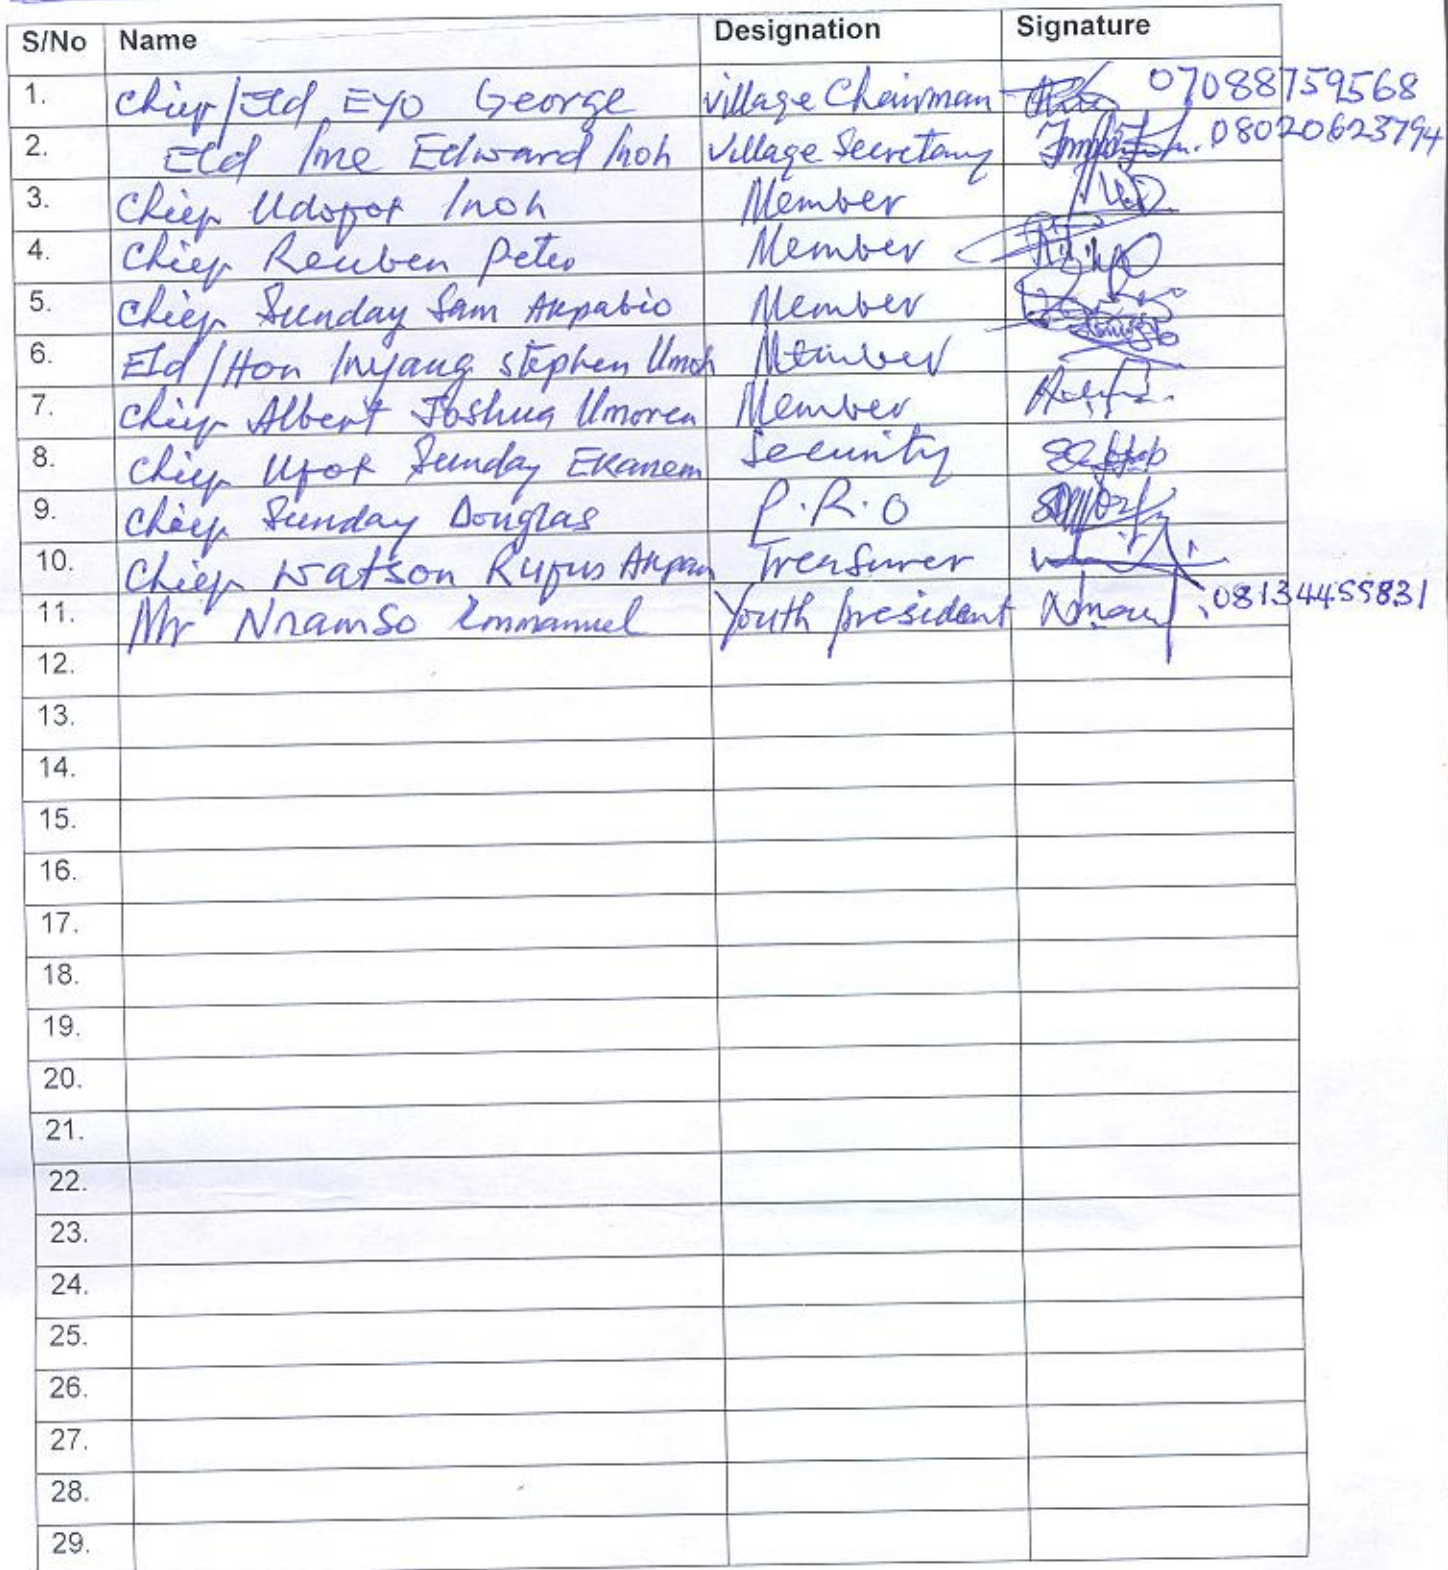 S/No Name Designation Signature
1. Chief/Eld EYO George Village Chairman 07088759568
2. Eld Ime Edward Inoh Village Secretary 08020623794
3. Chief Udofot Inoh Member
4. Chief Reuben Peter Member
5. Chief Sunday Sam Akpabio Member
6. Eld/Hon Inyang Stephen Umoh Member
7. Chief Albert Joshua Umoren Member
8. Chief Ufot Sunday Ekanem Security
9. Chief Sunday Douglas P.R.O
10. Chief Watson Rufus Akpan Treasurer
11. Mr Nnamso Emmanuel Youth president 08134455831
12.
13.
14.
15.
16.
17.
18.
19.
20.
21.
22.
23.
24.
25.
26.
27.
28.
29.